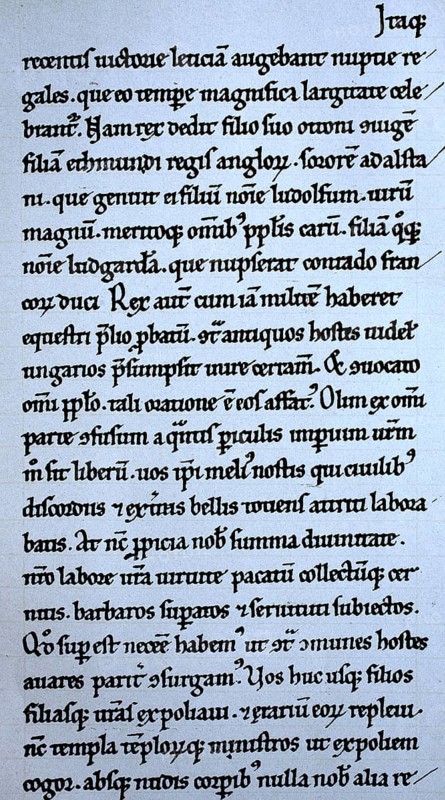 Itaq;
recentis uictorie leticiā augebant nuptie re/
gales. que eo tempe magnifica largitate cele/
brant᷑. Nam rex dedit filio suo ottoni ꝯiugē
filiā ethmundi regis angloꝝ. sororē adalsta/
ni. que genuit ei filiū noīe ludolfum. uirū
magnū. meritoq; om̄ib᷒ ppl̄is carū. filiā q̊q;
noīe ludgardā. que nupserat conrado fran/
coꝝ duci Rex aut̄ cum iā militē haberet
equestri p̄lio ꝓbatū. ꝯt᷑ antiquos hostes uidel᷑
ungarios p̄sumpsit inire certam̄. & ꝯuocato
om̄i ppl̄o. tali oratione ē eos affat᷒. Olim ex om̄i
parte ꝯfusum a quātis ꝑiculis imꝑium ur̄m
m̊ sit liberū. uos ip̄i meli᷒ nostis qui ciuilib᷒
discordiis ⁊ ext̄nis bellis totiens attriti labora/
batis. At nc̄ ꝓpicia nob̄ summa diuinitate.
nr̄o labore ur̄a uirtute pacatū collectūq; cer/
nitis. barbaros suꝑatos ⁊ seruituti subiectos.
Qđ suꝑ est necēē habem᷒ ut ꝯt᷑ ꝯmunes hostes
auares parit᷑ ꝯsurgam᷒. Uos huc usq; filios
filiasq; ur̄as expoliaui. ⁊ erariū eoꝝ repleui.
nc̄ templa tēploꝝq; ministros ut expoliem
cogor. absq; nudis corꝑib᷒ nulla nob̄ alia re/